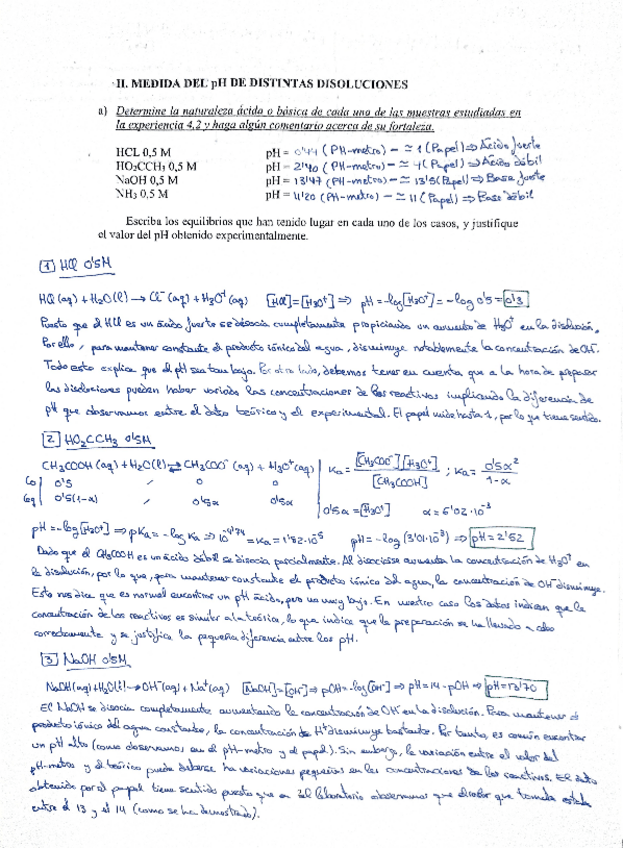 II. MEDIDA DEL pH DE DISTINTAS DISOLUCIONES
a) Determine la naturaleza ácida o básica de cada una de las muestras estudiadas en
la experiencia 4.2 y haga algún comentario acerca de su fortaleza.
HCL 0,5 M pH = 0'44 (PH-metro) - ≃ 1 (Papel) ⇒ Ácido fuerte
HO₂CCH₃ 0,5 M pH = 2'40 (PH-metro) - ≃ 4 (Papel) ⇒ Ácido débil
NaOH 0,5 M pH = 13'47 (PH-metro) - ≃ 13'5 (Papel) ⇒ Base fuerte
NH₃ 0,5 M pH = 11'20 (PH-metro) - ≃ 11 (Papel) ⇒ Base débil
Escriba los equilibrios que han tenido lugar en cada uno de los casos, y justifique
el valor del pH obtenido experimentalmente.
1 HCl 0'5M
HCl (aq) + H₂O (l) → Cl⁻ (aq) + H₃O⁺ (aq) [HCl] = [H₃O⁺] ⇒ pH = -log[H₃O⁺] = -log 0'5 = 0'3
Puesto que el HCl es un ácido fuerte se disocia completamente propiciando un aumento de H₃O⁺ en la disolución.
Por ello, para mantener constante el producto iónico del agua, disminuye notablemente la concentración de OH⁻.
Todo esto explica que el pH sea tan bajo. Por otro lado, debemos tener en cuenta que a la hora de preparar
las disoluciones pueden haber variado las concentraciones de los reactivos implicando la diferencia de
pH que observamos entre el dato teórico y el experimental. El papel mide hasta 1, por lo que tiene sentido.
2 HO₂CCH₃ 0'5M
CH₃COOH (aq) + H₂O (l) ⇄ CH₃COO⁻ (aq) + H₃O⁺ (aq) Ka = [CH₃COO⁻][H₃O⁺] / [CH₃COOH] ; Ka = 0'5α² / 1-α
Co 0'5 / 0 0
Ceq 0'5(1-α) / 0'5α 0'5α 0'5α = [H₃O⁺] α = 6'02·10⁻³
pH = -log[H₃O⁺] ⇒ pKa = -log Ka ⇒ 10⁻⁴'⁷⁴ = Ka = 1'82·10⁻⁵ pH = -log (3'01·10⁻³) ⇒ pH = 2'52
Dado que el CH₃COOH es un ácido débil se disocia parcialmente. Al disociarse aumenta la concentración de H₃O⁺ en
la disolución, por lo que, para mantener constante el producto iónico del agua, la concentración de OH⁻ disminuye.
Esto nos dice que es normal encontrar un pH ácido, pero no muy bajo. En nuestro caso los datos indican que la
concentración de los reactivos es similar a la teórica, lo que indica que la preparación se ha llevado a cabo
correctamente y se justifica la pequeña diferencia entre los pH.
3 NaOH 0'5M
NaOH (aq) + H₂O (l) → OH⁻ (aq) + Na⁺ (aq) [NaOH] = [OH⁻] ⇒ pOH = -log[OH⁻] ⇒ pH = 14 - pOH ⇒ pH = 13'70
El NaOH se disocia completamente aumentando la concentración de OH⁻ en la disolución. Para mantener el
producto iónico del agua constante, la concentración de H⁺ disminuye bastante. Por tanto, es común encontrar
un pH alto (como observamos en el pH-metro y el papel). Sin embargo, la variación entre el valor del
pH-metro y el teórico puede deberse ha variaciones pequeñas en las concentraciones de los reactivos. El dato
obtenido por el papel tiene sentido puesto que en el laboratorio observamos que el color que tomaba estaba
entre el 13 y el 14 (como se ha demostrado).